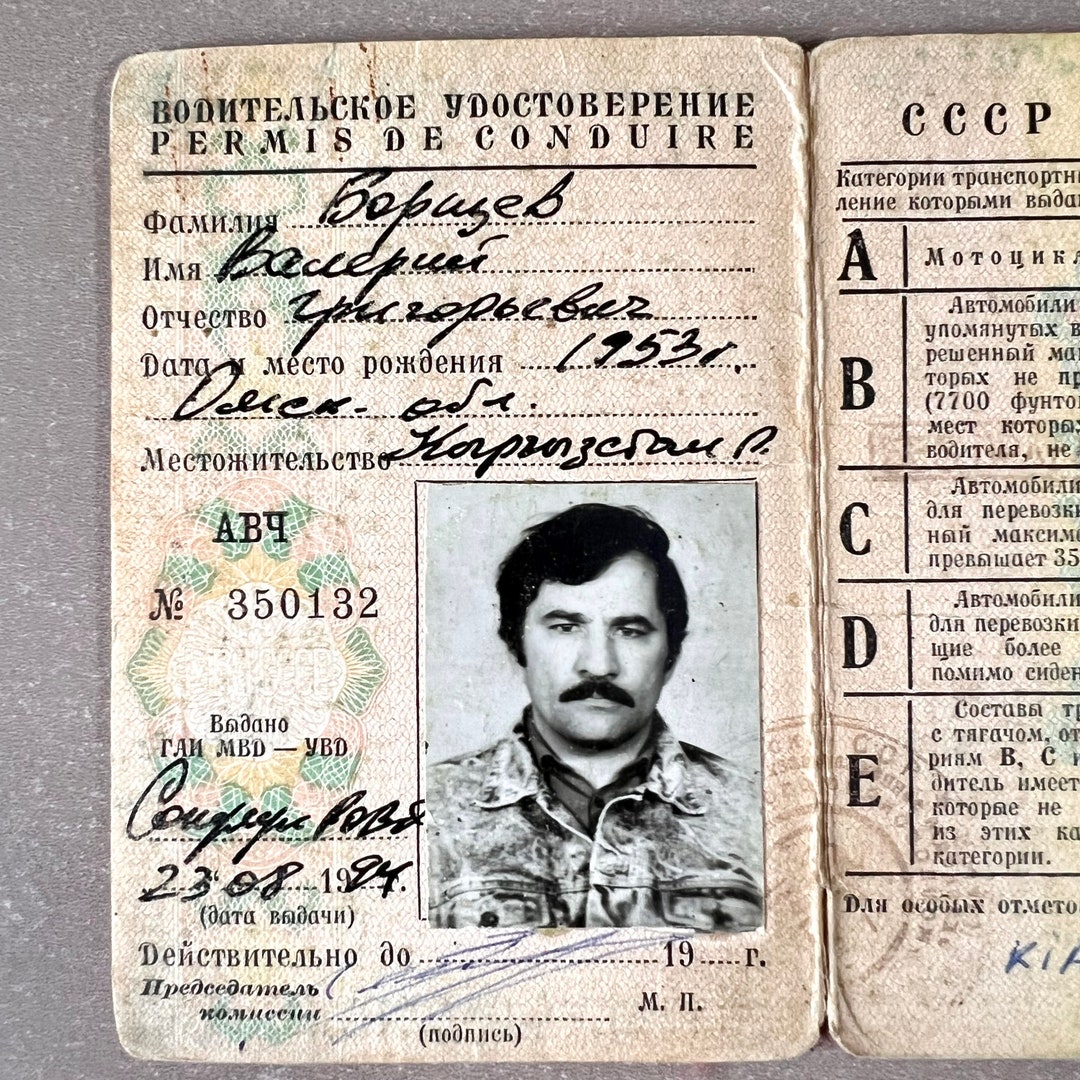 ВОДИТЕЛЬСКОЕ УДОСТОВЕРЕНИЕ
PERMIS DE CONDUIRE
Фамилия Борщев
Имя Валерий
Отчество Григорьевич
Дата и место рождения 1953г.
Омск. обл.
Местожительство Кыргызстан
АВЧ
№ 350132
Выдано
ГАИ МВД — УВД
23 08 1994г.
(дата выдачи)
Действительно до 19 г.
Председатель
комиссии
М. П.
(подпись)
СССР
Категории транспортн
ление которыми выда
A Мотоцикл
B Автомобили
упомянутых в
решенный ма
торых не пр
(7700 фунто
мест которы
водителя, не
C Автомобили
для перевозки
ный максим
превышает 35
D Автомобили
для перевозки
щие более
помимо сиден
E Составы тр
с тягачом, от
риям B, C и
дитель имеет
которые не
из этих ка
категории.
Для особых отмето
KIR